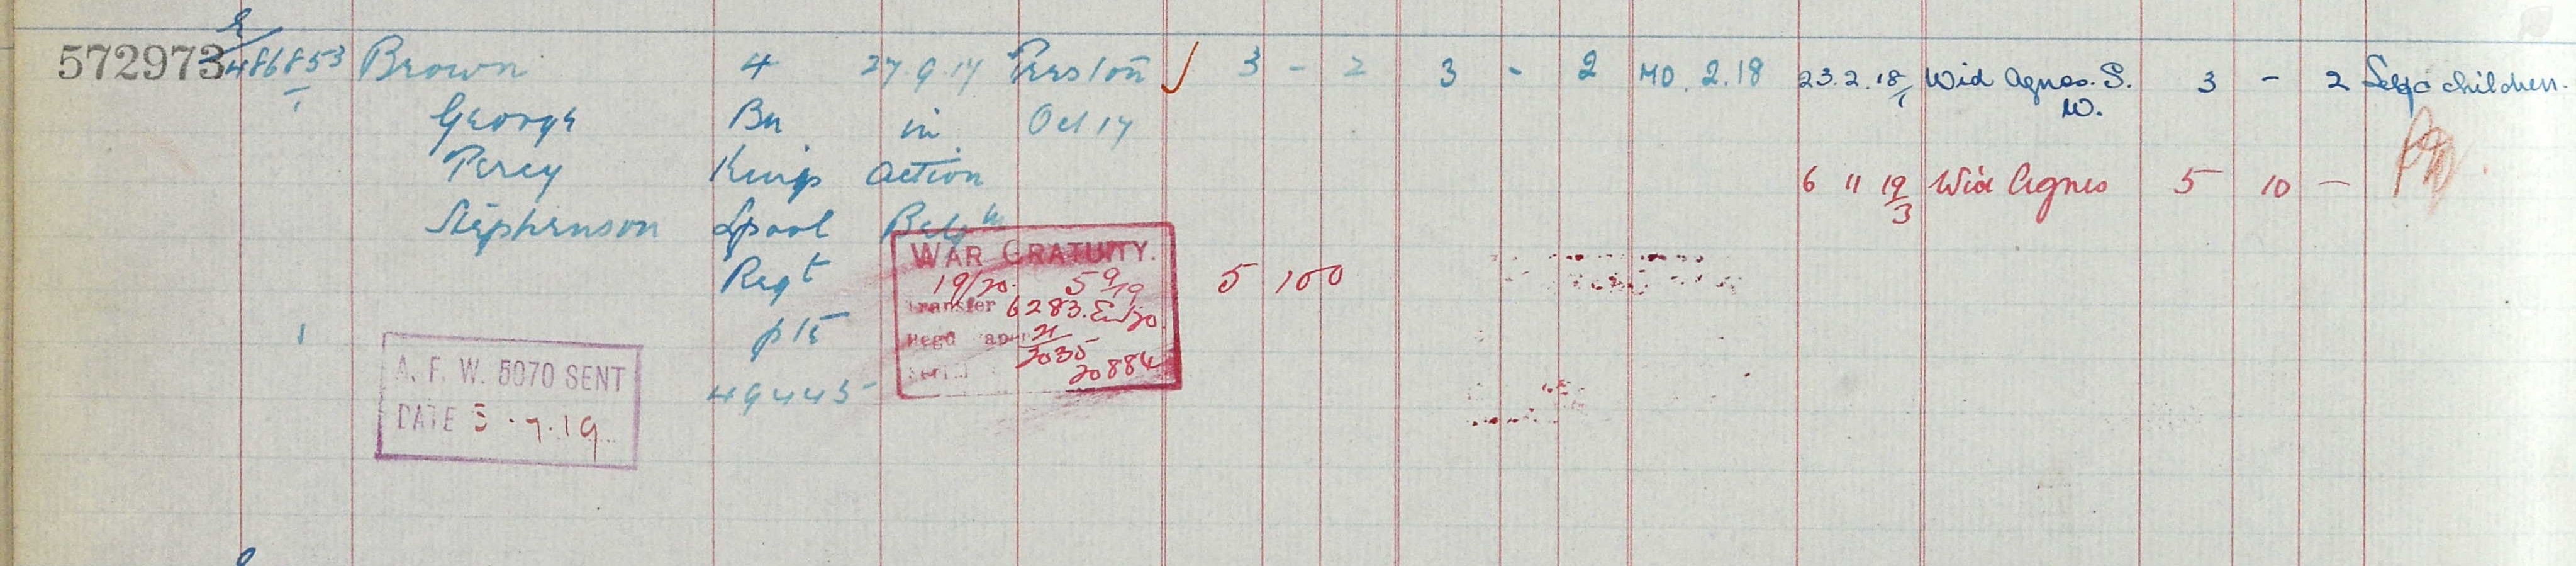 572973 E/486853/1 Brown 4 27.9.17 Preston ✓ 3 - 2 3 - 2 MO. 2.18 23.2.18/1 Wid Agnes. S. 3 - 2 Self & children.
George Bn in Oct 17 W.
Percy Kings Action 6 11 19/3 Wid Agnes 5 10 -
Stephenson Lpool Belgm
Regt 5 10 0
1 pte
49445
WAR GRATUITY.
19/20. 5 9/19
Transfer 6283. Ew/20
Regd Paper
3035
20884
A. F. W. 5070 SENT
DATE 5.7.19